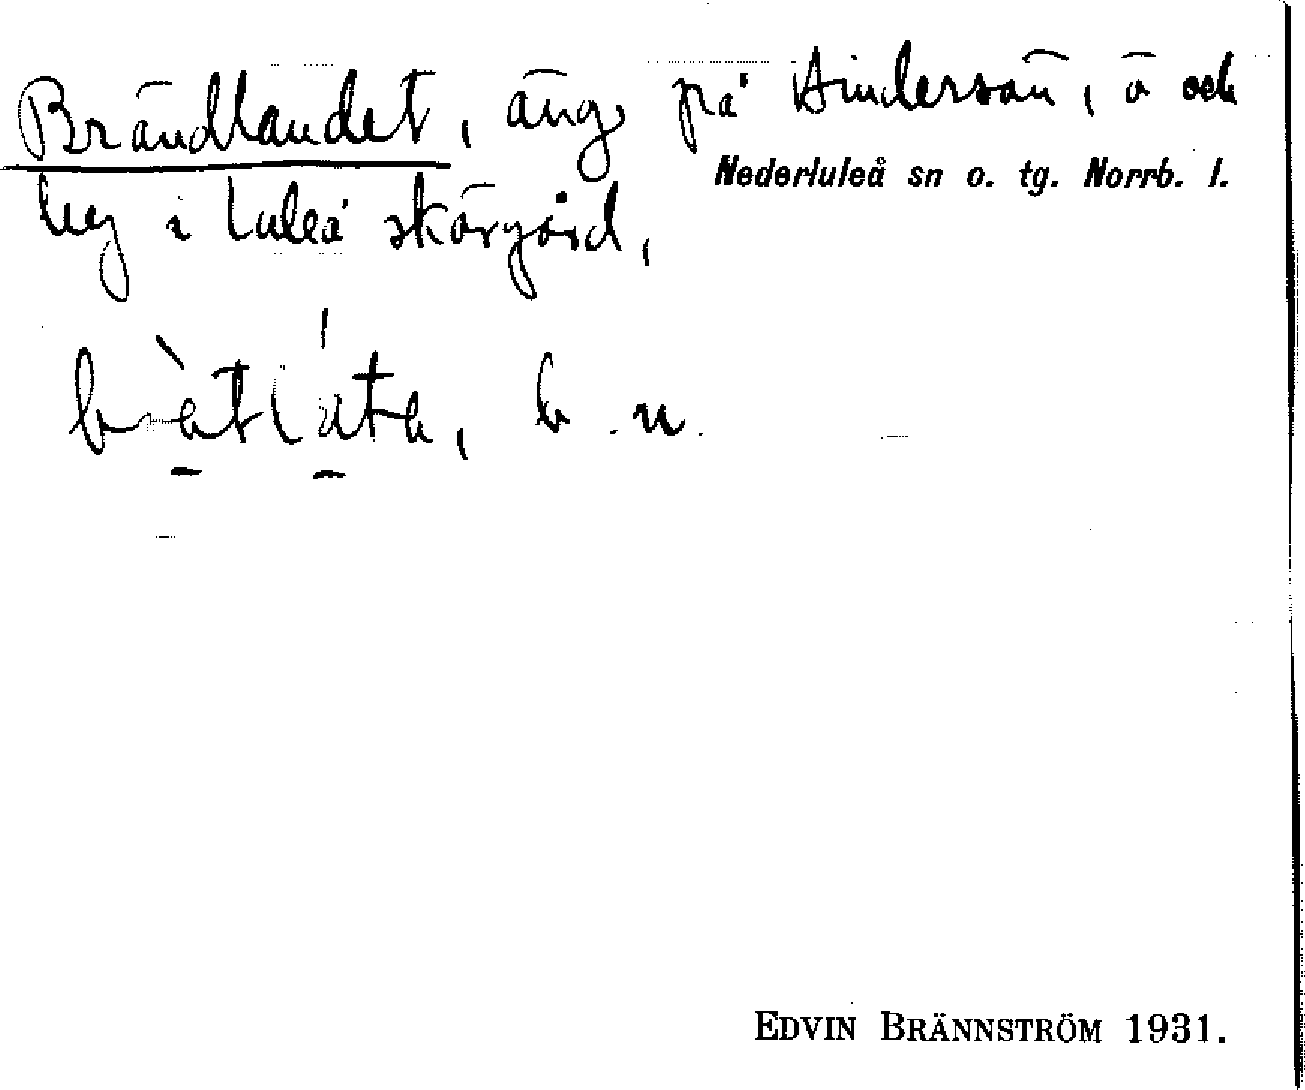 Brändlandet, äng på Hindersön, ö och
Nederluleå sn o. tg. Norrb. l.
by i Luleå skärgård,
b. n.
EDVIN BRÄNNSTRÖM 1931.